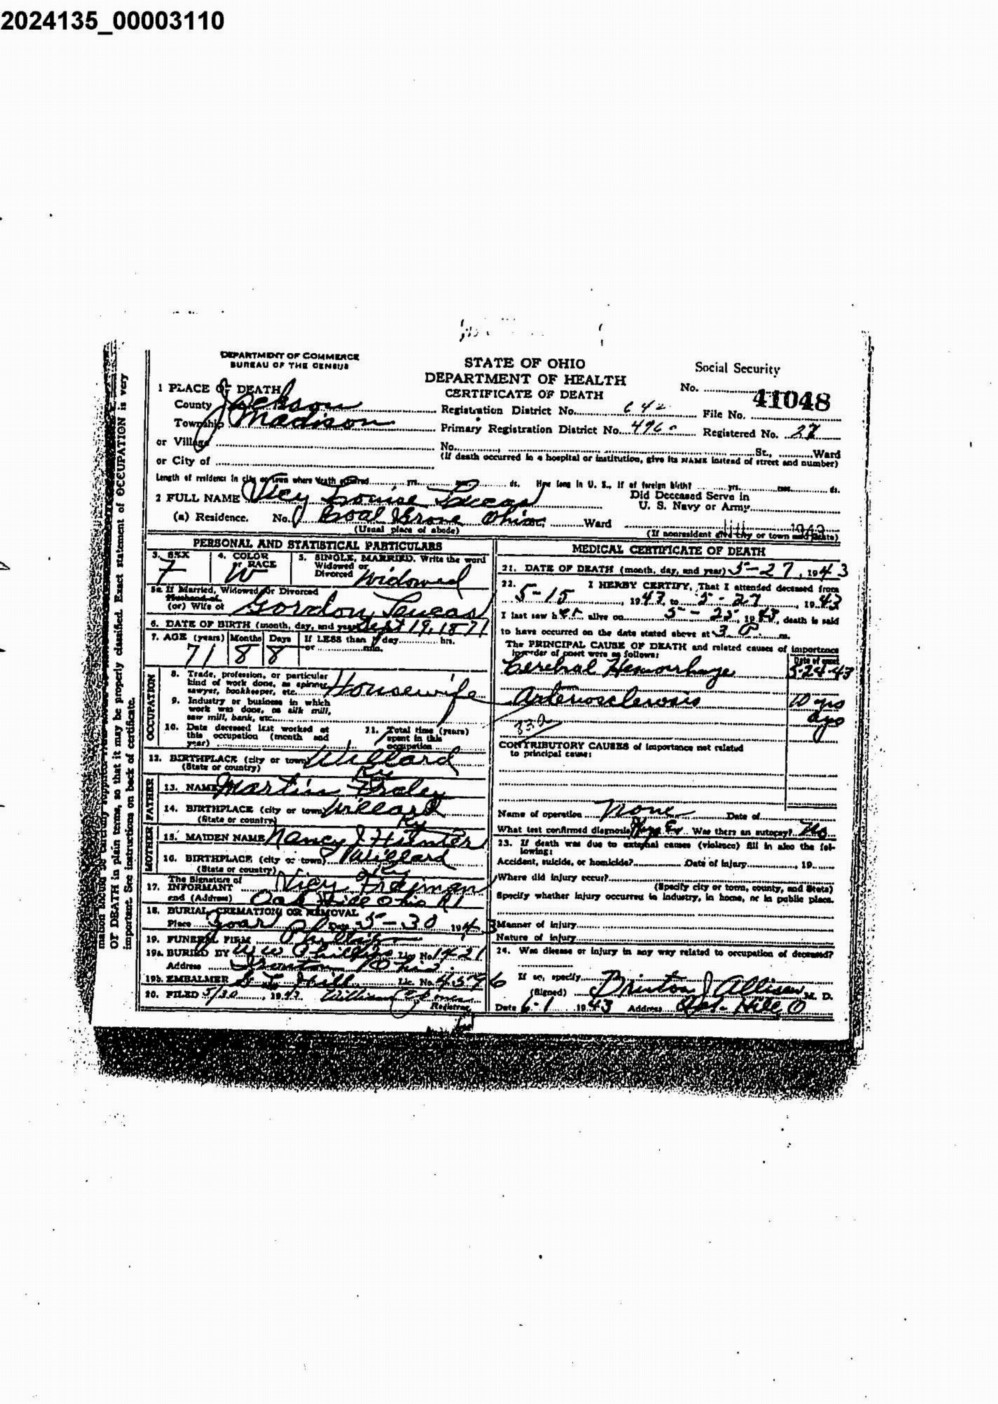 2024135_00003110
DEPARTMENT OF COMMERCE
BUREAU OF THE CENSUS
STATE OF OHIO
DEPARTMENT OF HEALTH
CERTIFICATE OF DEATH
Social Security
No.
1 PLACE OF DEATH
County Jackson
Registration District No. 642 File No. 41048
Township Madison
Primary Registration District No. 4960 Registered No. 27
or Village
No. St., Ward
or City of
(If death occurred in a hospital or institution, give its NAME instead of street and number)
Length of residence in city or town where death occurred yrs. mos. ds. How long in U. S., if of foreign birth? yrs. mos. ds.
2 FULL NAME Vicy Louise Lucas
Did Deceased Serve in
U. S. Navy or Army
(a) Residence. No. Coal Grove Ohio Ward
(Usual place of abode)
(If nonresident city or town and State)
PERSONAL AND STATISTICAL PARTICULARS
3. SEX F
4. COLOR or RACE W
5. SINGLE, MARRIED, Write the word
Widowed or
Divorced Widowed
5a. If Married, Widowed or Divorced
Husband of
(or) Wife of Gordon Lucas
6. DATE OF BIRTH (month, day, and year) Sept 19, 1871
7. AGE (years) Months Days If LESS than 1 day hrs.
or min.
71 8 8
OCCUPATION
8. Trade, profession, or particular
kind of work done, as spinner,
sawyer, bookkeeper, etc. Housewife
9. Industry or business in which
work was done, as silk mill,
saw mill, bank, etc.
10. Date deceased last worked at
this occupation (month and
year)
11. Total time (years)
spent in this
occupation
12. BIRTHPLACE (city or town) Willard
(State or country) Ky
FATHER
13. NAME Martin Fraley
14. BIRTHPLACE (city or town) Willard
(State or country) Ky
MOTHER
15. MAIDEN NAME Nancy J Hunter
16. BIRTHPLACE (city or town) Willard
(State or country) Ky
17. The Signature of
INFORMANT Vicy
and (Address) Oak Hill Ohio R1
18. BURIAL, CREMATION OR REMOVAL
Place 5-30 1943
19. FUNERAL FIRM Phillips
19a. BURIED BY Phillips Lic No. 1421
Address Ironton Ohio
19b. EMBALMER Hill Lic. No. 43596
20. FILED 5/30, 1943 William
Registrar
MEDICAL CERTIFICATE OF DEATH
21. DATE OF DEATH (month, day, and year) 5-27, 1943
22. I HERBY CERTIFY, That I attended deceased from
5-15, 1943, to 5-27, 1943
I last saw her alive on 5-25, 1943, death is said
to have occurred on the date stated above at m.
The PRINCIPAL CAUSE OF DEATH and related causes of importance
in order of onset were as follows:
Date of onset
Cerebral Hemorrhage 5-24-43
Arteriosclerosis 10 yrs
ago
CONTRIBUTORY CAUSES of importance not related
to principal cause:
Name of operation None Date of
What test confirmed diagnosis Was there an autopsy? No
23. If death was due to external causes (violence) fill in also the fol-
lowing:
Accident, suicide, or homicide? Date of injury 19
Where did injury occur?
(Specify city or town, county, and State)
Specify whether injury occurred in industry, in home, or in public place.
Manner of injury
Nature of injury
24. Was disease or injury in any way related to occupation of deceased?
If so, specify
(Signed) Brinton J Allison M. D.
Date 6-1 1943 Address Oak Hill O
OF DEATH in plain terms, so that it may be properly classified. Exact statement of OCCUPATION is very
important. See instructions on back of certificate.